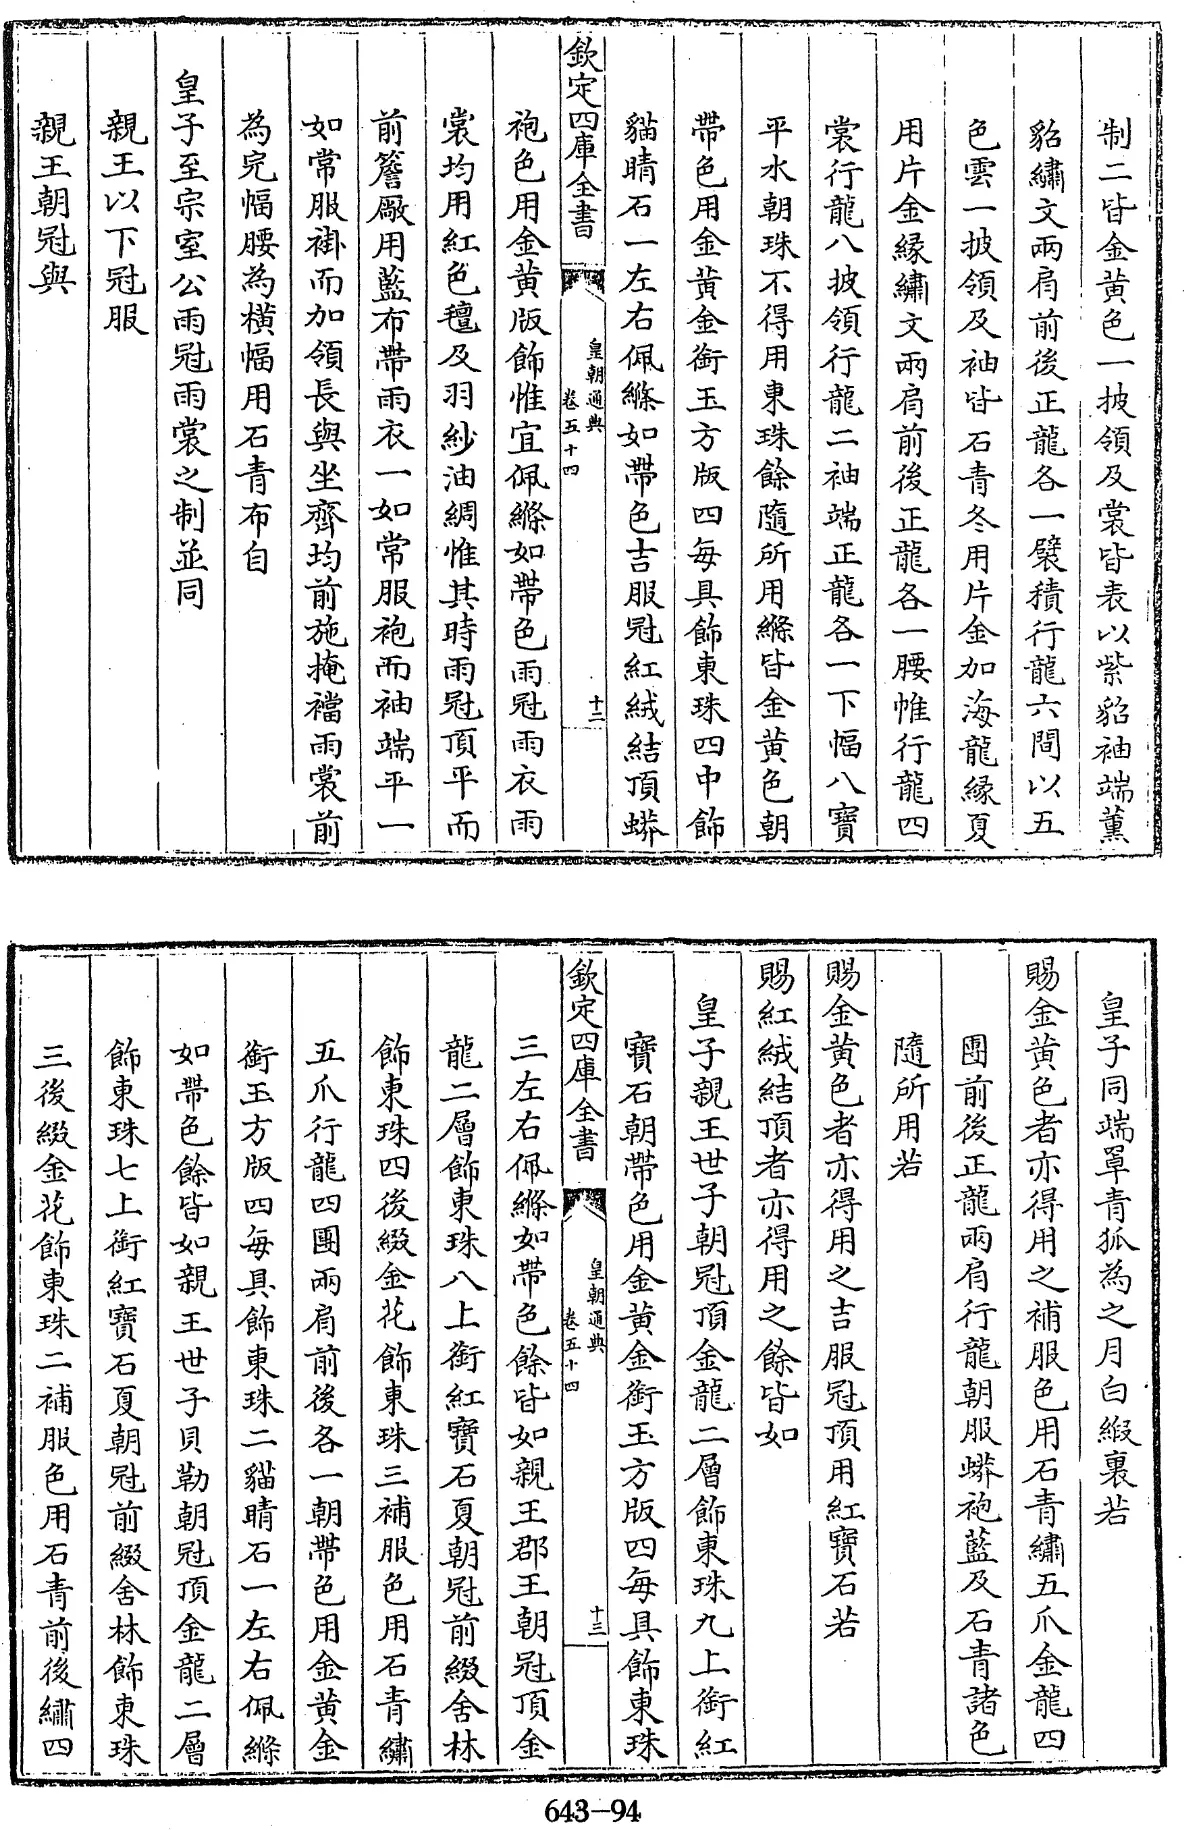 制二皆金黄色一披領及裳皆表以紫貂袖端薰
貂繡文兩肩前後正龍各一襞積行龍六間以五
色雲一披領及袖皆石青冬用片金加海龍緣夏
用片金緣繡文兩肩前後正龍各一腰帷行龍四
裳行龍八披領行龍二袖端正龍各一下幅八寶
平水朝珠不得用東珠餘隨所用縧皆金黄色朝
帶色用金黄金銜玉方版四每具飾東珠四中飾
貓睛石一左右佩縧如帶色吉服冠紅絨結頂蟒
欽定四庫全書
皇朝通典
卷五十四
十二
袍色用金黄版飾惟宜佩縧如帶色雨冠雨衣雨
裳均用紅色氊及羽紗油綢惟其時雨冠頂平而
前簷厰用藍布帶雨衣一如常服袍而袖端平一
如常服褂而加領長與坐齊均前施掩襠雨裳前
為完幅腰為橫幅用石青布自
皇子至宗室公雨冠雨裳之制並同
親王以下冠服
親王朝冠與
皇子同端罩青狐為之月白緞裏若
賜金黄色者亦得用之補服色用石青繡五爪金龍四
團前後正龍兩肩行龍朝服蟒袍藍及石青諸色
隨所用若
賜金黄色者亦得用之吉服冠頂用紅寶石若
賜紅絨結頂者亦得用之餘皆如
皇子親王世子朝冠頂金龍二層飾東珠九上銜紅
寶石朝帶色用金黄金銜玉方版四每具飾東珠
欽定四庫全書
皇朝通典
卷五十四
十三
三左右佩縧如帶色餘皆如親王郡王朝冠頂金
龍二層飾東珠八上銜紅寶石夏朝冠前綴舍林
飾東珠四後綴金花飾東珠三補服色用石青繡
五爪行龍四團兩肩前後各一朝帶色用金黄金
銜玉方版四每具飾東珠二貓睛石一左右佩縧
如帶色餘皆如親王世子貝勒朝冠頂金龍二層
飾東珠七上銜紅寶石夏朝冠前綴舍林飾東珠
三後綴金花飾東珠二補服色用石青前後繡四
643-94